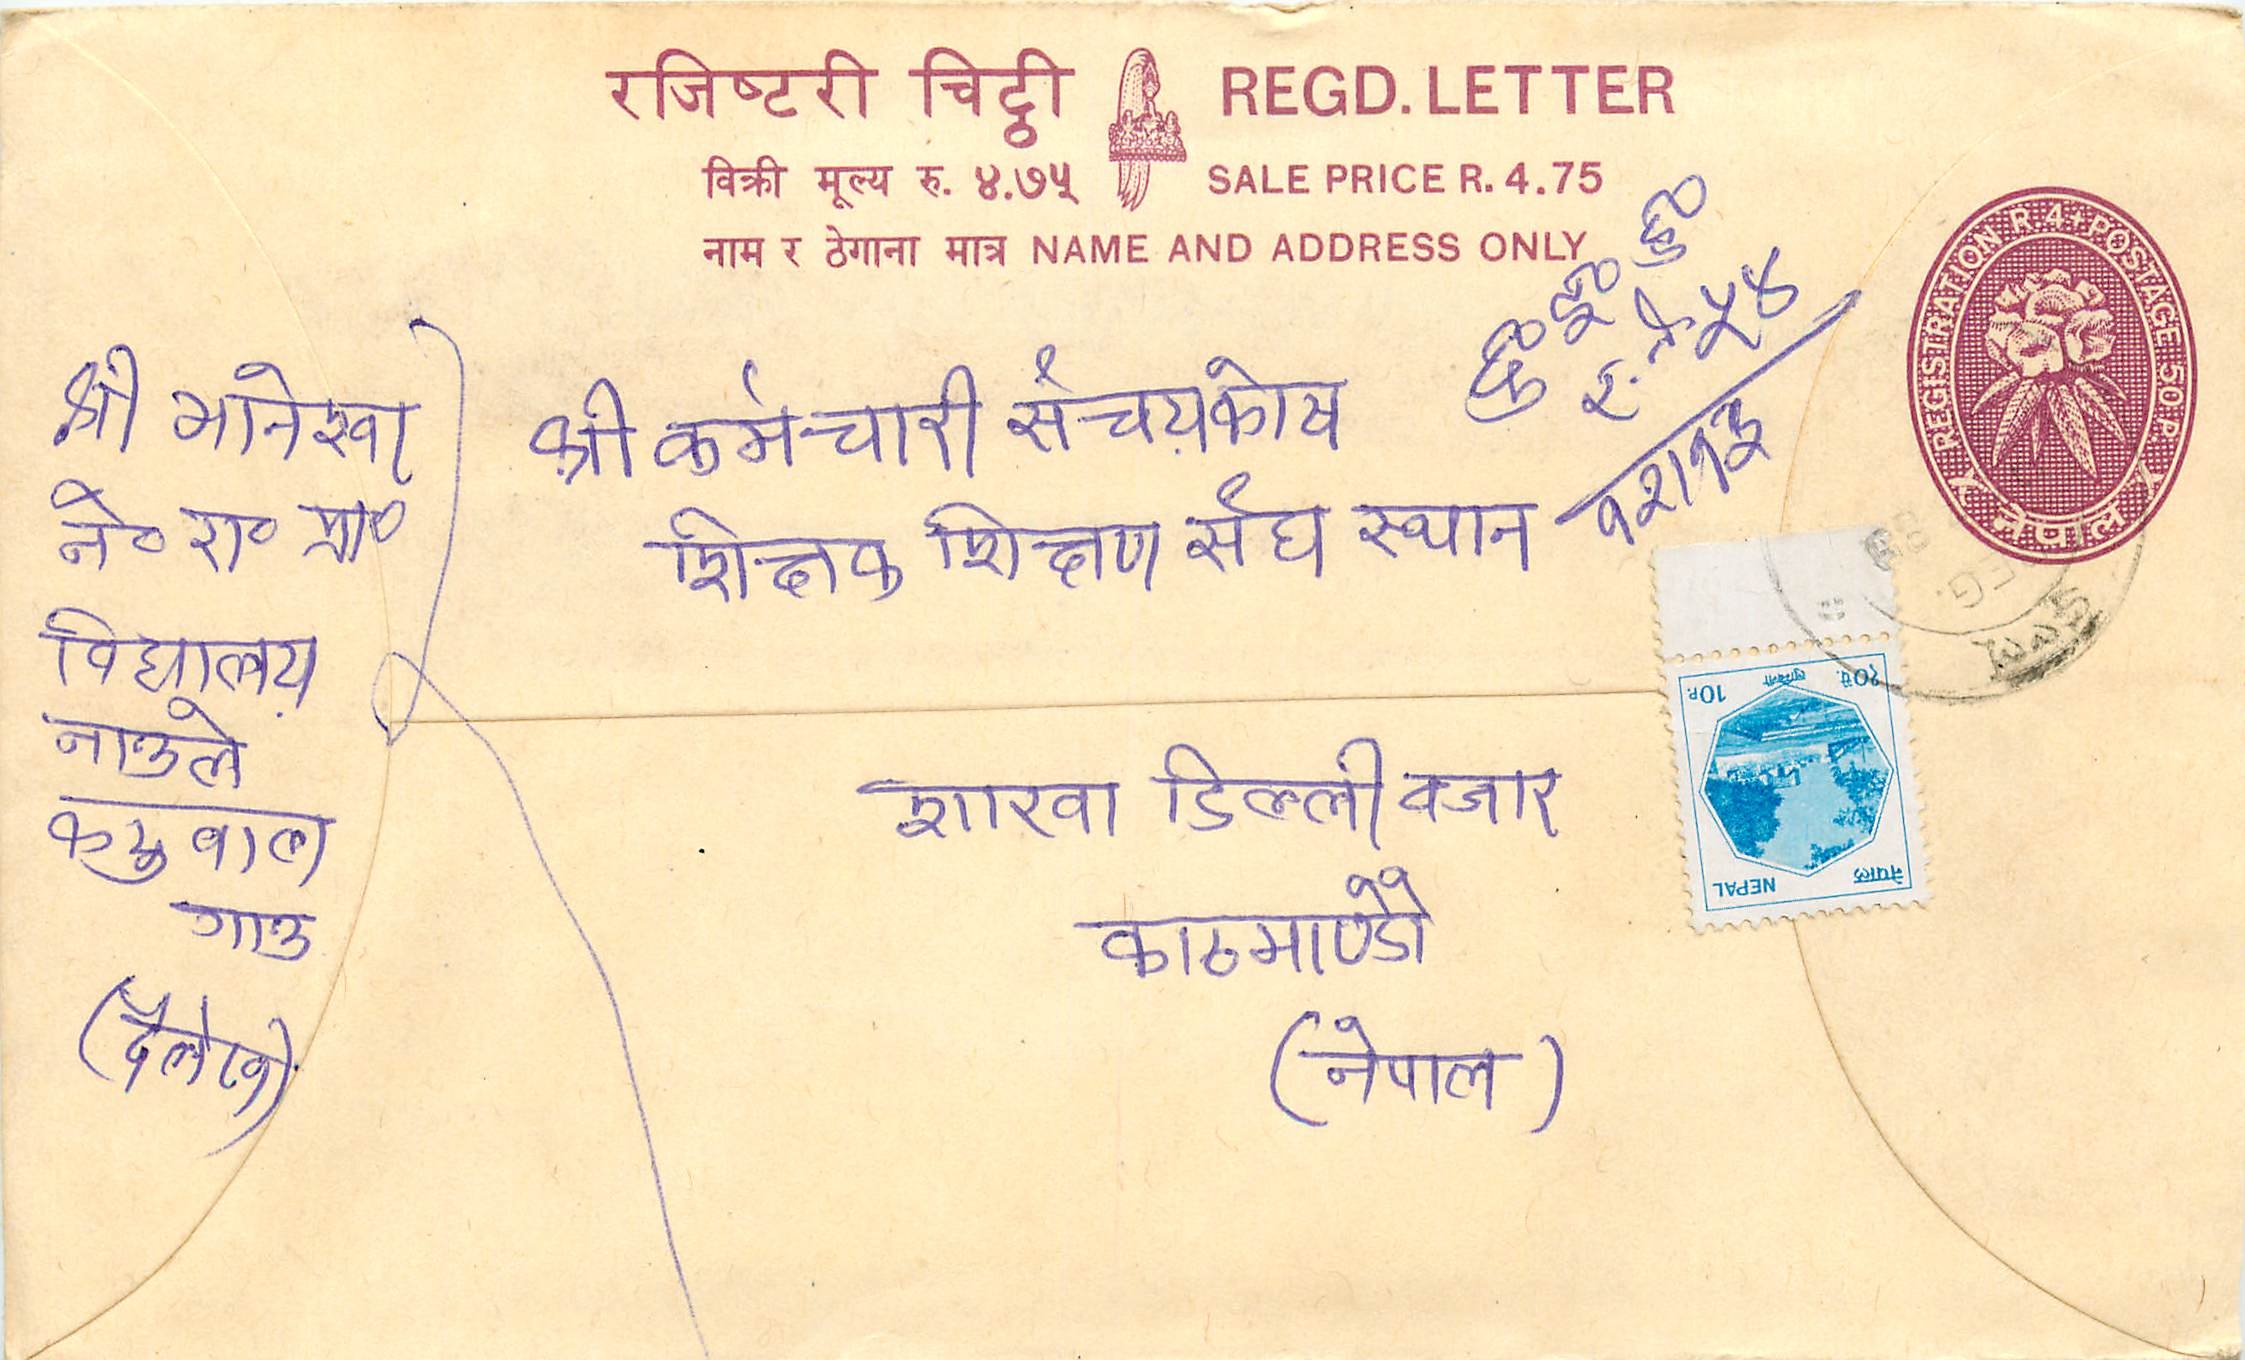 रजिष्टरी चिठ्ठी REGD. LETTER
विक्री मूल्य रु. ४.७५ SALE PRICE R. 4.75
नाम र ठेगाना मात्र NAME AND ADDRESS ONLY
REGISTRATION R.4+POSTAGE 50 P.
नेपाल
श्री कर्मचारी संचयकोष
शिक्षक शिक्षण संघ स्थान
शाखा डिल्ली बजार
काठमाण्डौ
(नेपाल)
श्री
ने० रा० प्रा०
विद्यालय
नाउले
कटुवाल
गाउ
(दैलेख)
१०पै. लुम्बिनी 10P.
नेपाल NEPAL